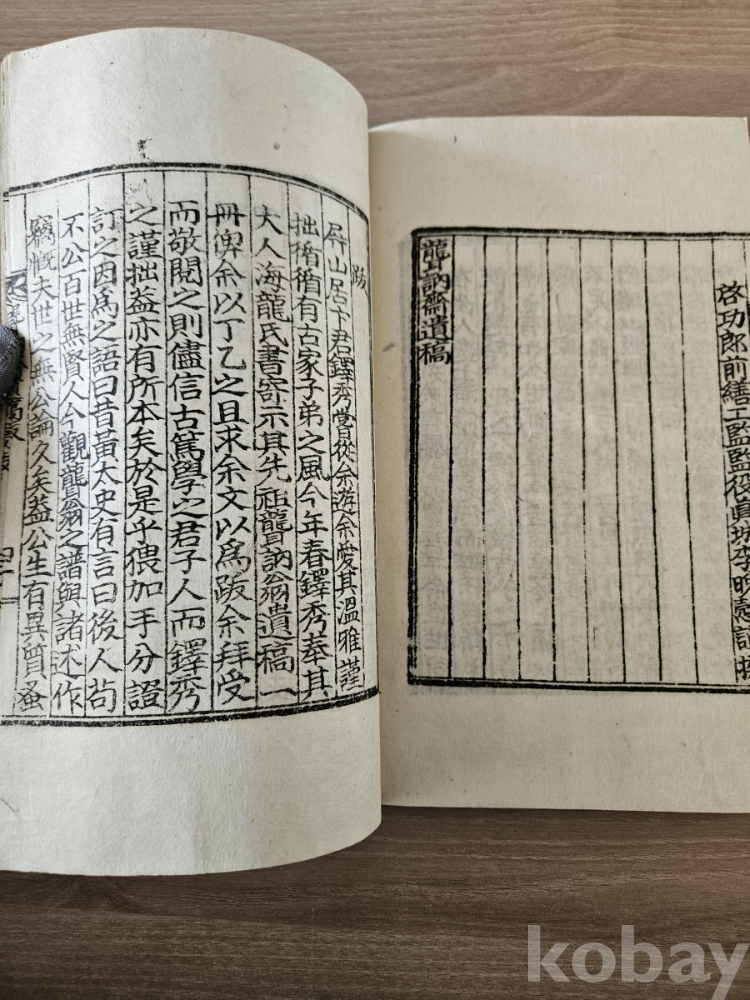 啓功郎前繕工監監役眞城李晩慤謹
聾訥齋遺稿
跋
屛山居卞君鐸秀嘗從余遊余愛其溫雅謹
拙循循有古家子弟之風今年春鐸秀奉其
大人海龍氏書寄示其先祖聾訥翁遺稿一
冊俾余以丁乙之且求余文以爲跋余拜受
而敬閱之則儘信古篤學之君子人而鐸秀
之謹拙益亦有所本矣於是乎猥加手分證
訂之因爲之語曰昔黃太史有言曰後人苟
不公百世無賢人今觀聾翁之譜與諸述作
竊慨夫世之無公論久矣益公生有異質蚤
kobay